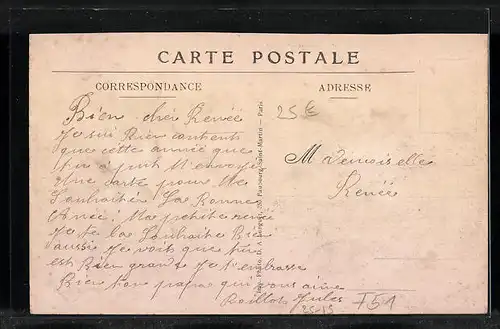 CARTE POSTALE
CORRESPONDANCE
ADRESSE
Bien chéi Renée
Je sui Bien contents
que cette année que
tu a m'envoyé
Une carte pour Me
Souhaiter La Bonne
Année! Ma petite renée
Je te la Souhaite Bien
aussi Je vois que tu
est Bien grande Je t'embrasse
Bien ton papa qui vous aime
Jules
25 €
Mademoiselle
Renée
Faubourg Saint-Martin — Paris
T51